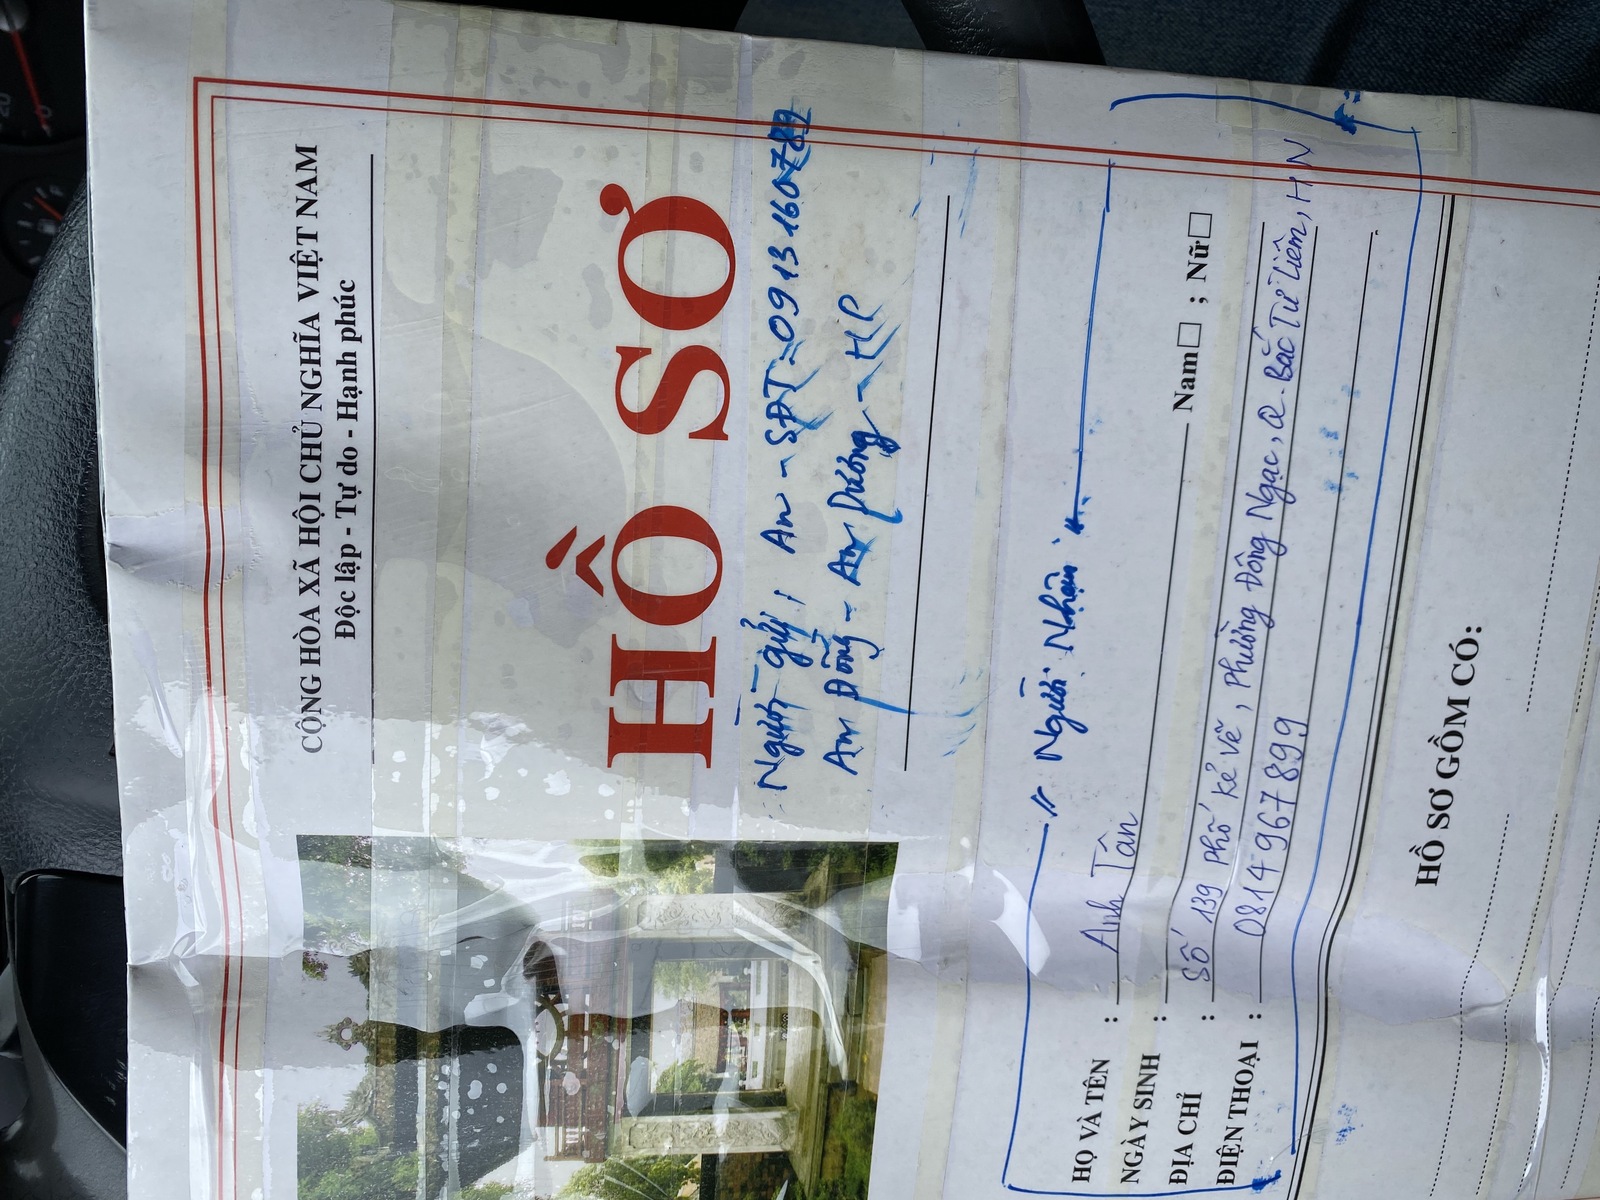 CỘNG HÒA XÃ HỘI CHỦ NGHĨA VIỆT NAM
Độc lập - Tự do - Hạnh phúc
HỒ SƠ
Người gửi: An - SĐT: 0913160789
An Đồng - An Dương - HP
" Người Nhận "
HỌ VÀ TÊN : Anh Tân
NGÀY SINH : Nam ☐ ; Nữ ☐
ĐỊA CHỈ : Số 139 Phố Kẻ Vẽ, Phường Đông Ngạc, Q. Bắc Từ Liêm, HN
ĐIỆN THOẠI : 0814967899
HỒ SƠ GỒM CÓ: